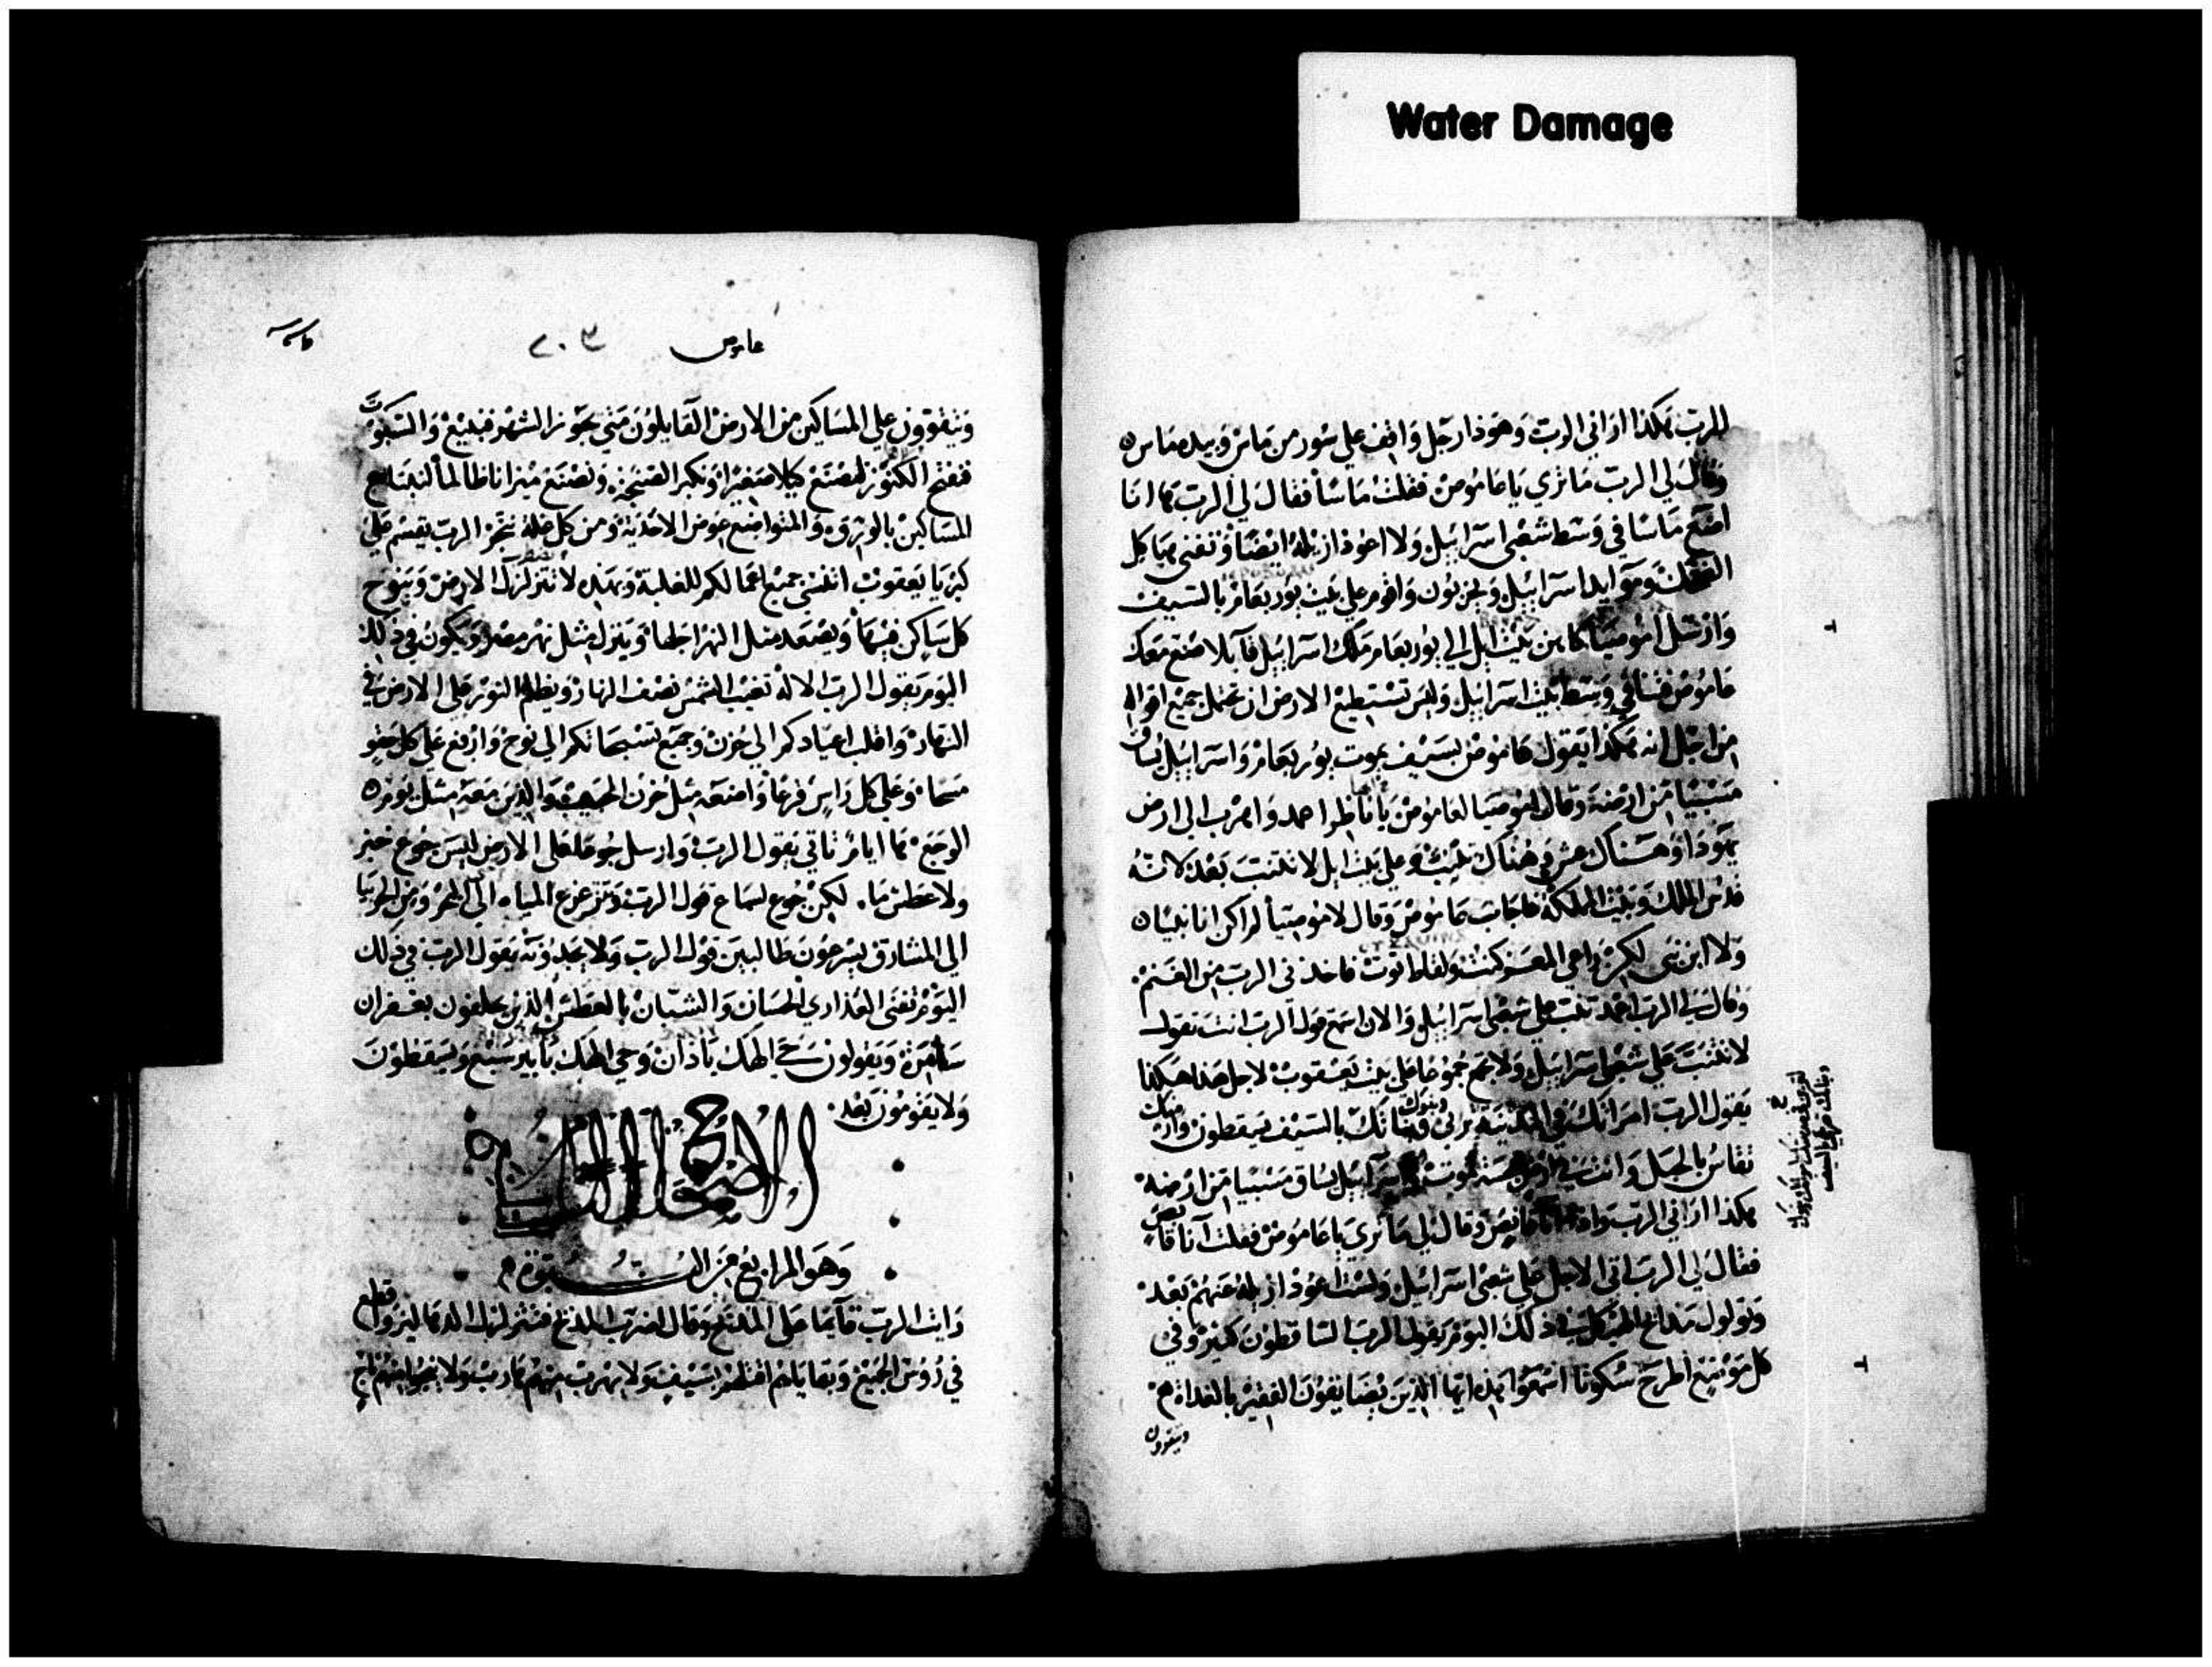 Water Damage
الرب هكذا اراني الرب وهوذا رجل واقف علي سور من ماس وبيده ماس
وقال لي الرب ما تري يا عاموص فقلت ماسا فقال لي الرب ها انا
اضع ماسا في وسط شعبي اسراييل ولا اعوذ ازيله ايضا وتفني هياكل
الضحك وموايد اسراييل يخربون واقوم علي بيت يوربعام بالسيف
وارسل اموصيا كاهن بيت ايل الي يوربعام ملك اسراييل قايلا صنع معك
عاموص فتنا في وسط بيت اسراييل وليس تستطيع الارض ان تحمل جميع اقواله
من اجل انه هكذا يقول عاموص بسيف يموت يوربعام واسراييل يساق
مسبيا من ارضه وقال اموصيا لعاموص يا ناظرا اعمد واهرب الي ارض
يهوذا وهناك عش وهناك تنبت وعلي بيت ايل لا تتنبت بعد لانه
قدس الملك وبيت المملكة فاجاب عاموص وقال لاموصيا لم اكن انا نبيا
ولا ابن نبي لكن راعي المعز كنت ولقاط توت فاخذني الرب من الغنم
وقال لي الرب اعمد تنبت علي شعبي اسراييل والان اسمع قول الرب انت تقول
لا تتنبت علي شعبي اسراييل ولا تجمع جموعا علي بيت يعقوب لاجل هذا هكذا
يقول الرب امراتك في المدينة تزني وبنوك وبناتك بالسيف يسقطون وارضك
تقاس بالحبل وانت في ارض نجسة تموت اسراييل يساق مسبيا من ارضه
هكذا اراني الرب واذا اناء قانص وقال لي ما تري يا عاموص فقلت اناء قانص
فقال لي الرب اتي الاجل علي شعبي اسراييل ولست اعوذ ازيله عنهم بعد
وتولول سقايف الهيكل في ذلك اليوم يقول الرب الساقطون كثير وفي
كل موضع اطرح سكوتا اسمعوا هذه ايها الذين يضايقون الفقير بالغداة
وينقوون
عاموص ٢٠٣
وينقوون علي المساكين من الارض القايلون متي يجوز الشهر فنبيع والسبوت
فنفتح الكنوز لنصنع كيلا صغيرا ونكبر الصنجة ونصنع ميزانا ظالما لنبتاع
المساكين بالورق والمتواضع عوض الاحذية ومن كل غلة نتجر الرب يقسم علي
كبريا يعقوب اننسي جميع اعمالكم للغلبة وبهذه لا تتزلزل الارض وينوح
كل ساكن فيها ويصعد مثل النهر اجلها وينزل مثل نهر مصر ويكون في ذلك
اليوم يقول الرب الاله تغيب الشمس نصف النهار ويظلم النور علي الارض في
النهار واقلب اعيادكم الي حزن وجميع تسبحاتكم الي نوح وارفع علي كل حقو
مسحا وعلي كل راس قرعا واضعه مثل حزن الحبيب والذين معه مثل يوم
الوجع ها ايام تاتي يقول الرب وارسل جوعا علي الارض ليس جوع خبز
ولا عطش ماء لكن جوع لسماع قول الرب وتتزعزع المياه الي البحر ومن الجربيا
الي المشارق يسرعون طالبين قول الرب ولا يجدونه يقول الرب في ذلك
اليوم تفني العذاري الحسان والشبان بالعطش الذين يحلفون بغفران
سامرة ويقولون حي الهك يا دان وحي الهك يا بيرسبع ويسقطون
ولا يقومون بعد
الاصحاح التاسع
وهو الرابع من النبوة
رايت الرب قايما علي المذبح وقال اضرب المذبح فتتزلزل الدهاليز واقطع
في روس الجميع وبقاياهم اقتلهم بسيف ولا يهرب منهم هارب ولا ينجوا منهم ناج